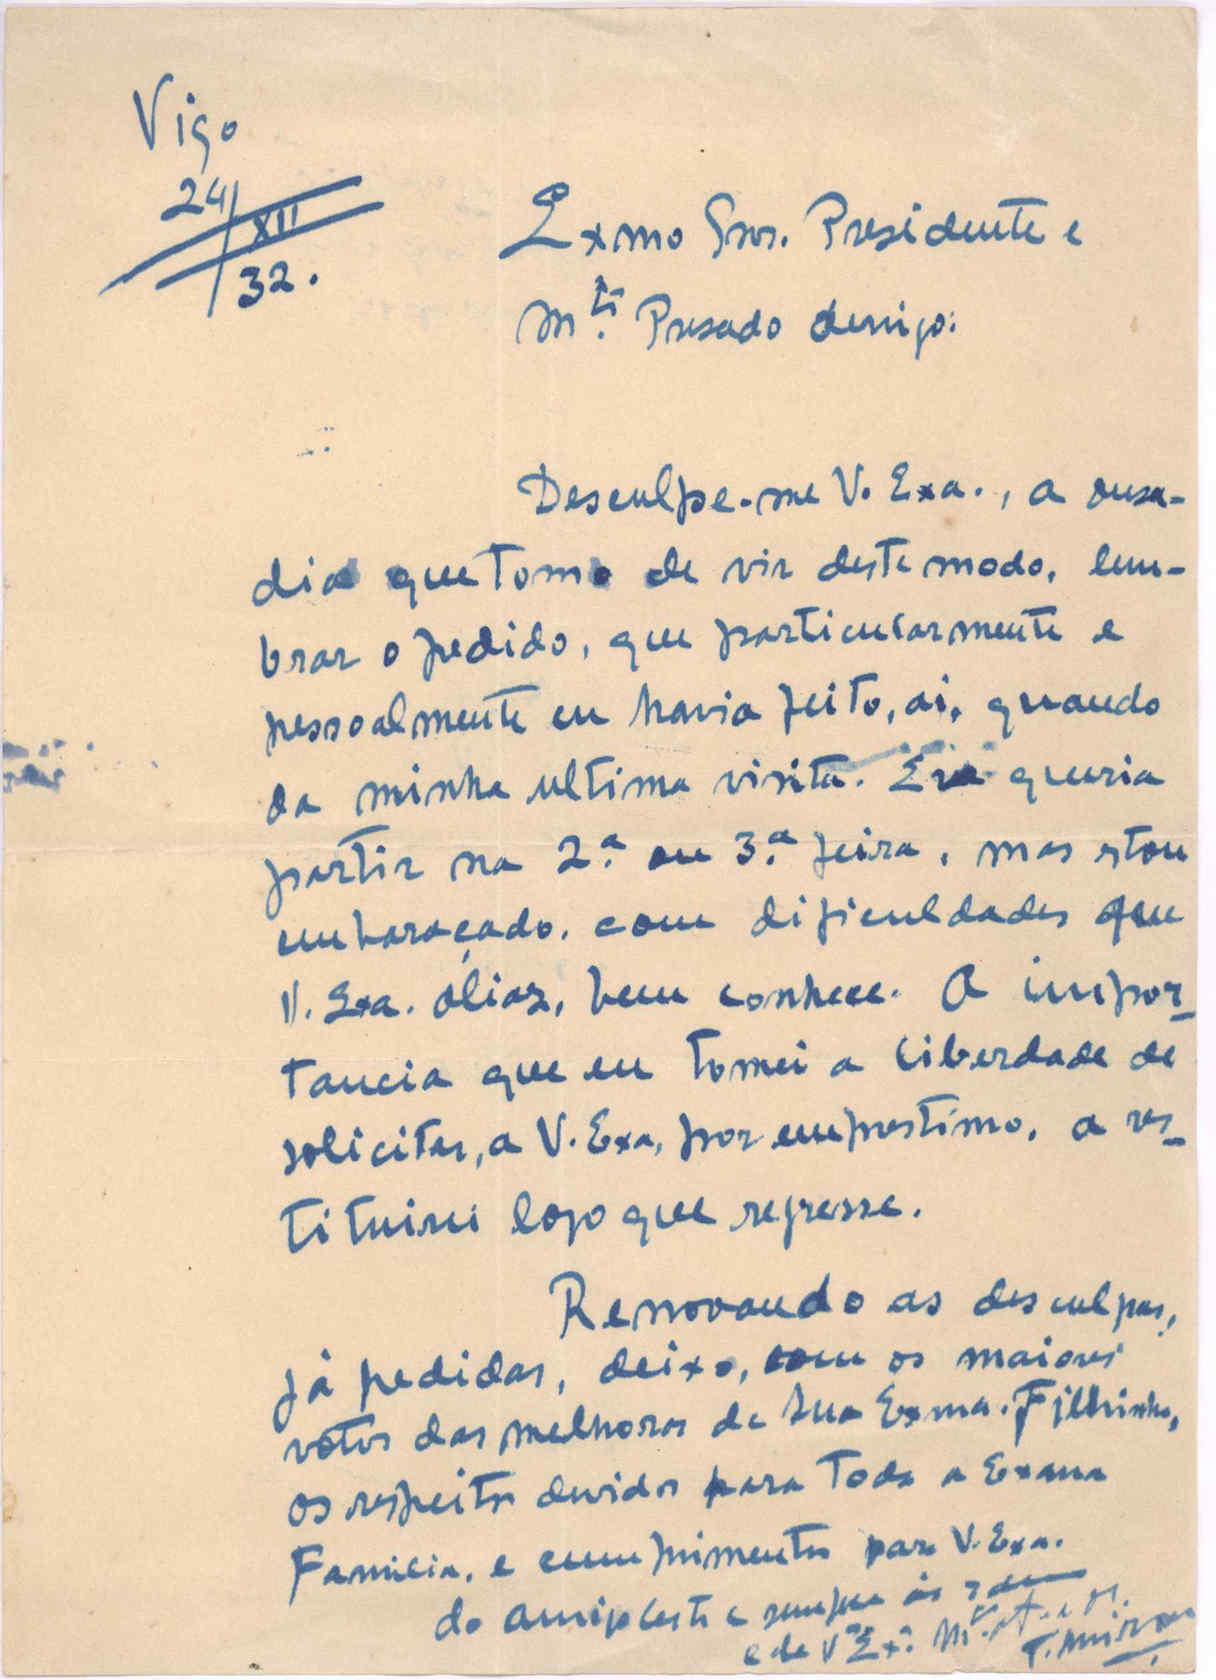 Vigo
24/XII/32.
Exmo Snr. Presidente e
Mtº. Presado Amigo:
Desculpe-me V. Exa., a ousa-
dia que tomo de vir deste modo, lem-
brar o pedido, que particularmente e
pessoalmente eu havia feito, ai, quando
da minha ultima visita. Eu queria
partir na 2.ª ou 3.ª feira, mas estou
embaraçado, com dificuldades que
V. Exa. áliaz, bem conhece. A impor-
tancia que eu tomei a liberdade de
solicitar, a V. Exa, por emprestimo, a res-
tituirei logo que regresse.
Renovando as desculpas,
já pedidas, deixo, com os maiores
votos das melhoras de Sua Exma. Filhinha,
os respeitos devidos para toda a Exma
Familia, e cumprimentos para V. Exa.
do amigo certo e sempre ás
e de V. Exª. Mtº.